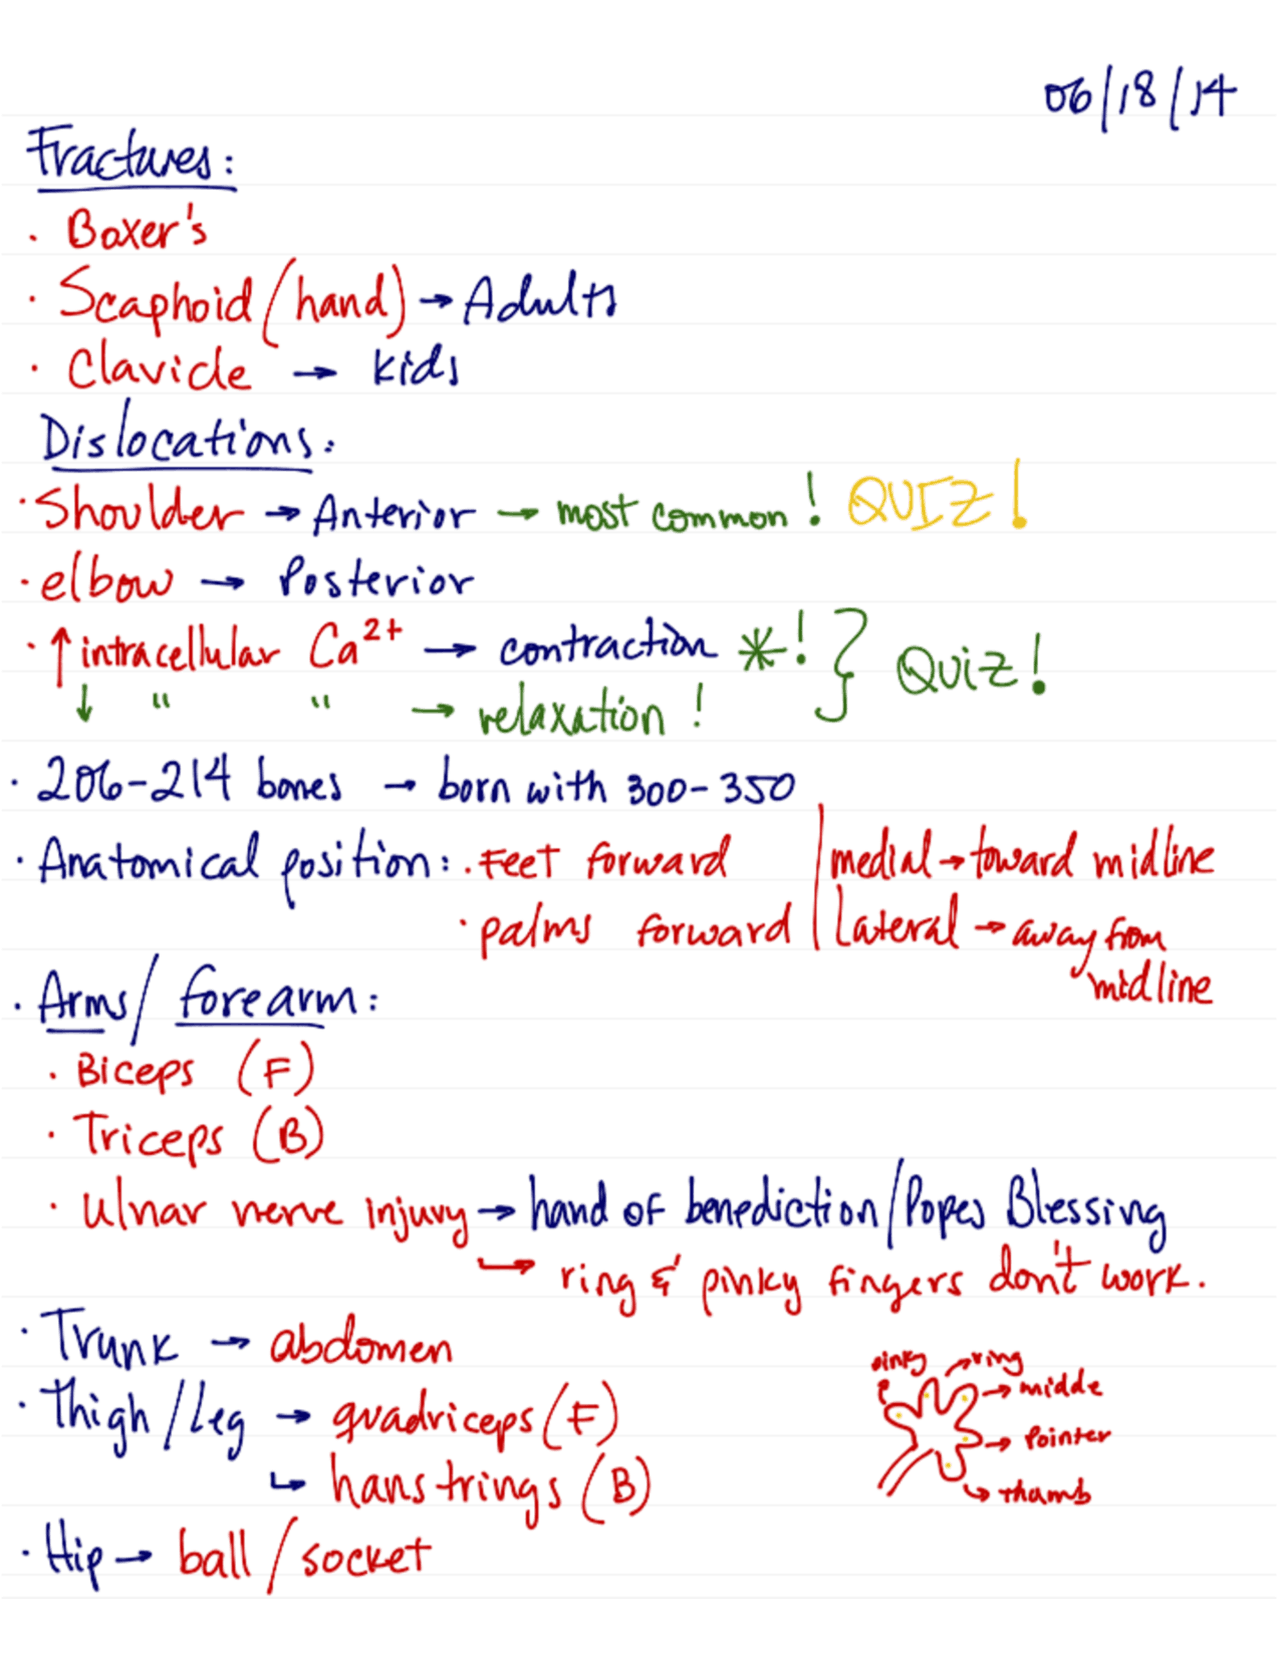 06/18/14
Fractures:
· Boxer's
· Scaphoid (hand) → Adults
· Clavicle → kids
Dislocations:
· Shoulder → Anterior → most common! QUIZ!
· elbow → Posterior
· ↑ intracellular Ca²⁺ → contraction *! } Quiz!
↓ " " → relaxation!
· 206-214 bones → born with 300-350
· Anatomical position: · Feet forward | medial → toward midline
· palms forward | Lateral → away from
midline
· Arms/forearm:
· Biceps (F)
· Triceps (B)
· Ulnar nerve injury → hand of benediction/Popes Blessing
↳ ring & pinky fingers don't work.
· Trunk → abdomen
· Thigh/Leg → quadriceps (F)
↳ hanstrings (B)
· Hip → ball/socket
pinky → ring
→ midde
→ Pointer
↳ thamb